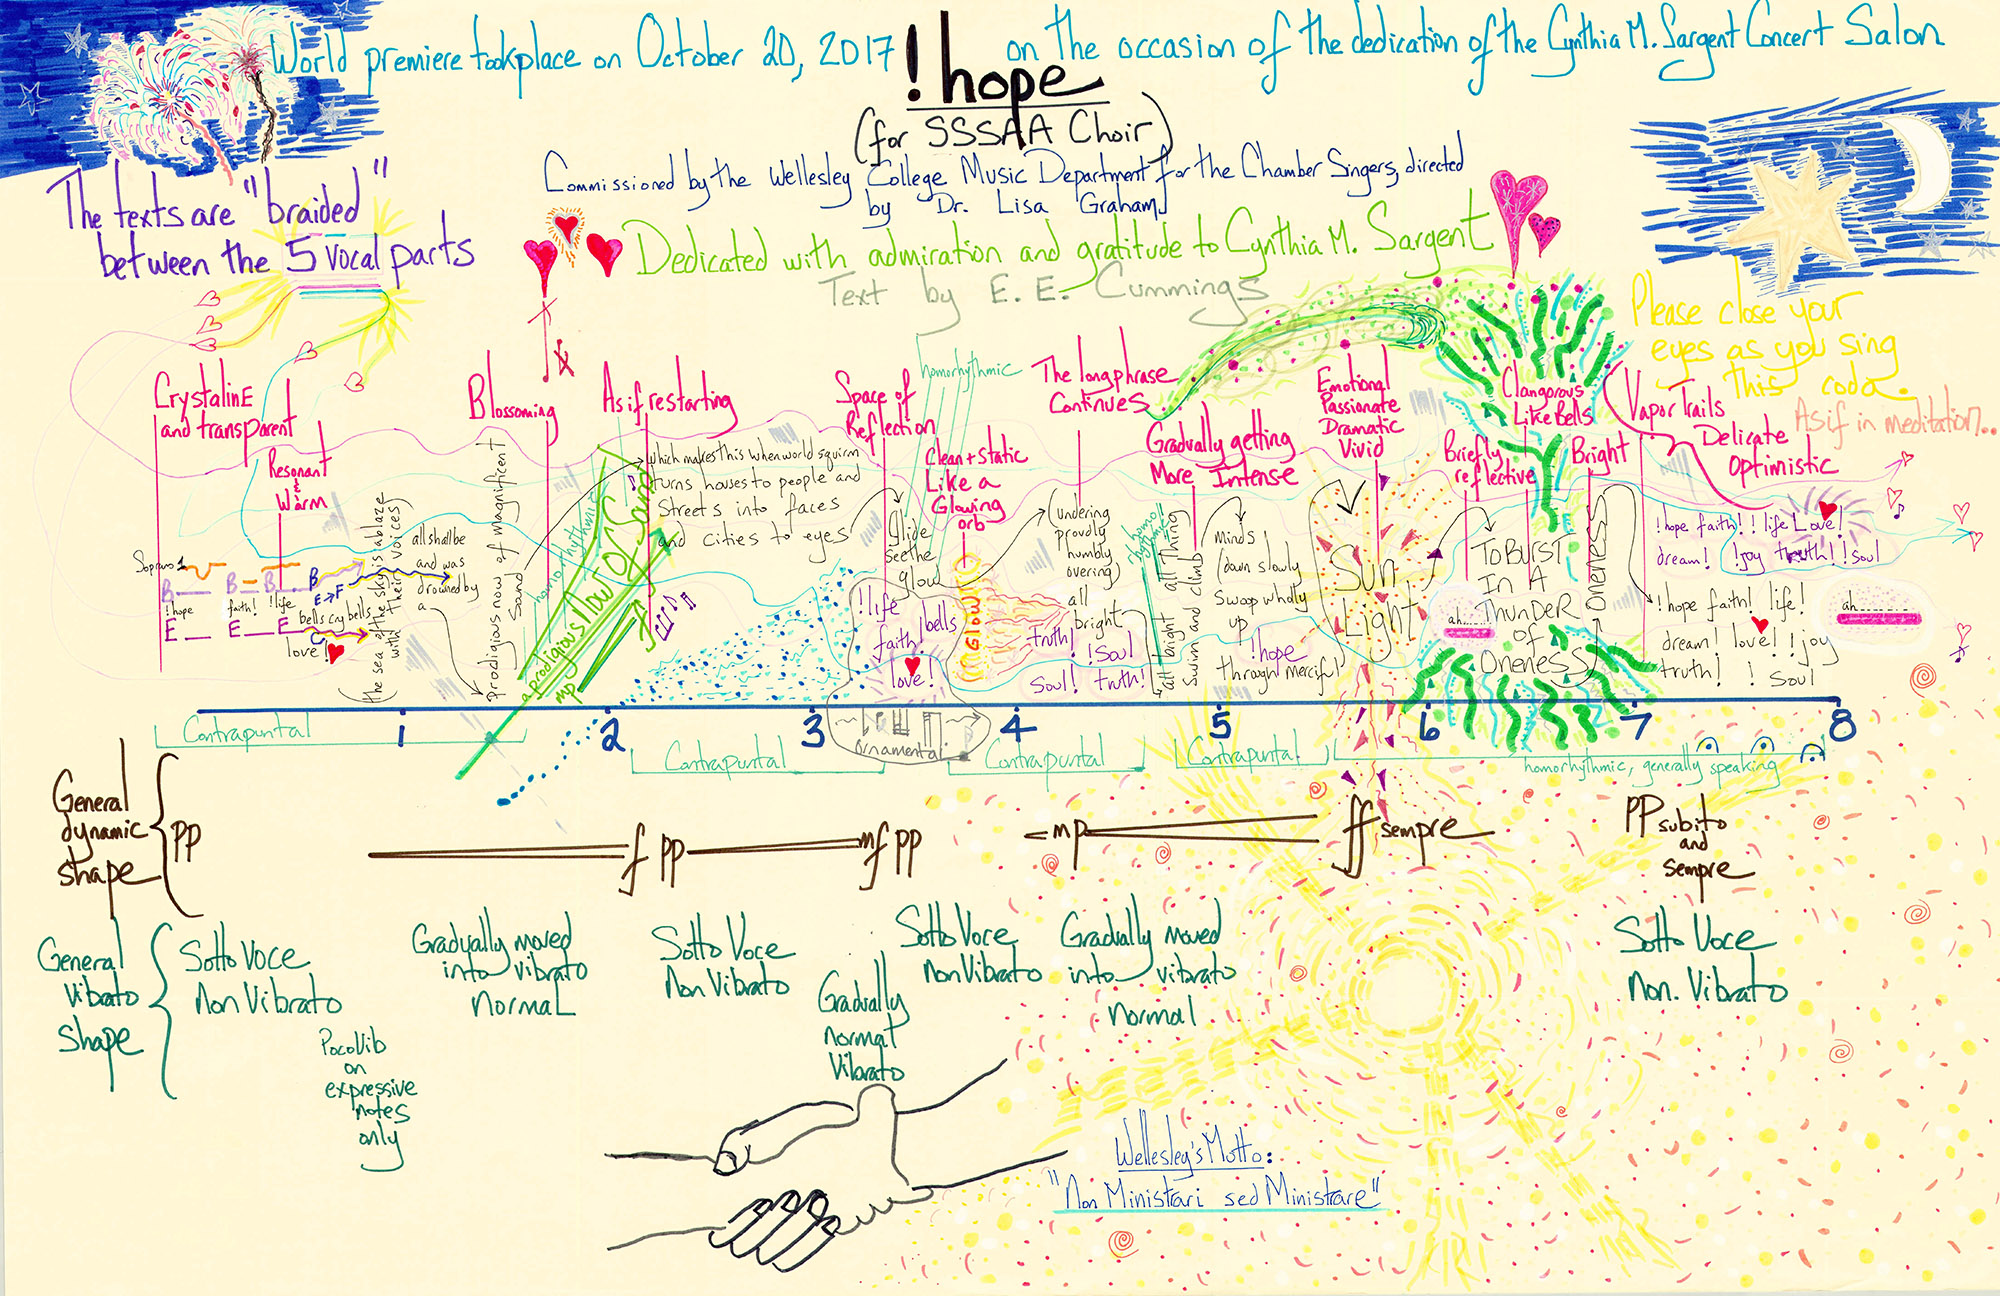 World premiere took place on October 20, 2017
! hope
on the occasion of the dedication of the Cynthia M. Sargent Concert Salon
(for SSSAA Choir)
Commissioned by the Wellesley College Music Department for the Chamber Singers, directed
by Dr. Lisa Graham
Dedicated with admiration and gratitude to Cynthia M. Sargent
Text by E. E. Cummings
The texts are "braided"
between the 5 vocal parts
Please close your
eyes as you sing
this coda.
As if in meditation...
Crystaline
and transparent
Resonant
&
Warm
Blossoming
As if restarting
Space of
Reflection
homorhythmic
Clean + static
Like a
Glowing
orb
The long phrase
Continues
Gradually getting
More Intense
Emotional
Passionate
Dramatic
Vivid
Briefly
reflective
Clangorous
Like Bells
Bright
Vapor Trails
Delicate
Optimistic
Soprano 1
B B B B
E→F
! hope faith! ! life
bells cry bells
E E E C
love!
(the sea of the sky is ablaze
with their voices)
all shall be
and was
drowned by
a
prodigious now of magnificent
sand
homorhythmic
a prodigious Now Of Sand
mp
f
which makes this when world squirm
turns houses to people and
streets into faces
and cities to eyes
glide
see the
glow
! life
faith! bells
love!
ornamental
GLOW
(undering
proudly
humbly
overing)
all
bright
truth!
! Soul
Soul! truth!
homorhythmic
all bright all Thing
swim and climb
minds
(down slowly
swoop wholly
up
! hope
through merciful
Sun
Light
ah......
To BURST
IN A
THUNDER
of
ONENESS)
ONENESS
! hope faith! ! life Love!
dream! ! joy truth! ! Soul
! hope faith! life!
dream! love! ! joy
truth! ! Soul
ah........
1 2 3 4 5 6 7 8
Contrapuntal
Contrapuntal
Contrapuntal
Contrapuntal
homorhythmic, generally speaking
General
dynamic
shape
pp f pp mf pp mp ff sempre
PP subito
and
sempre
General
Vibrato
shape
Sotto Voce
Non Vibrato
Poco Vib
on
expressive
notes
only
Gradually moved
into vibrato
normal
Sotto Voce
Non Vibrato
Gradually
normal
Vibrato
Sotto Voce
non Vibrato
Gradually moved
into vibrato
normal
Sotto Voce
Non. Vibrato
Wellesley's Motto:
"Non Ministrari sed Ministrare"